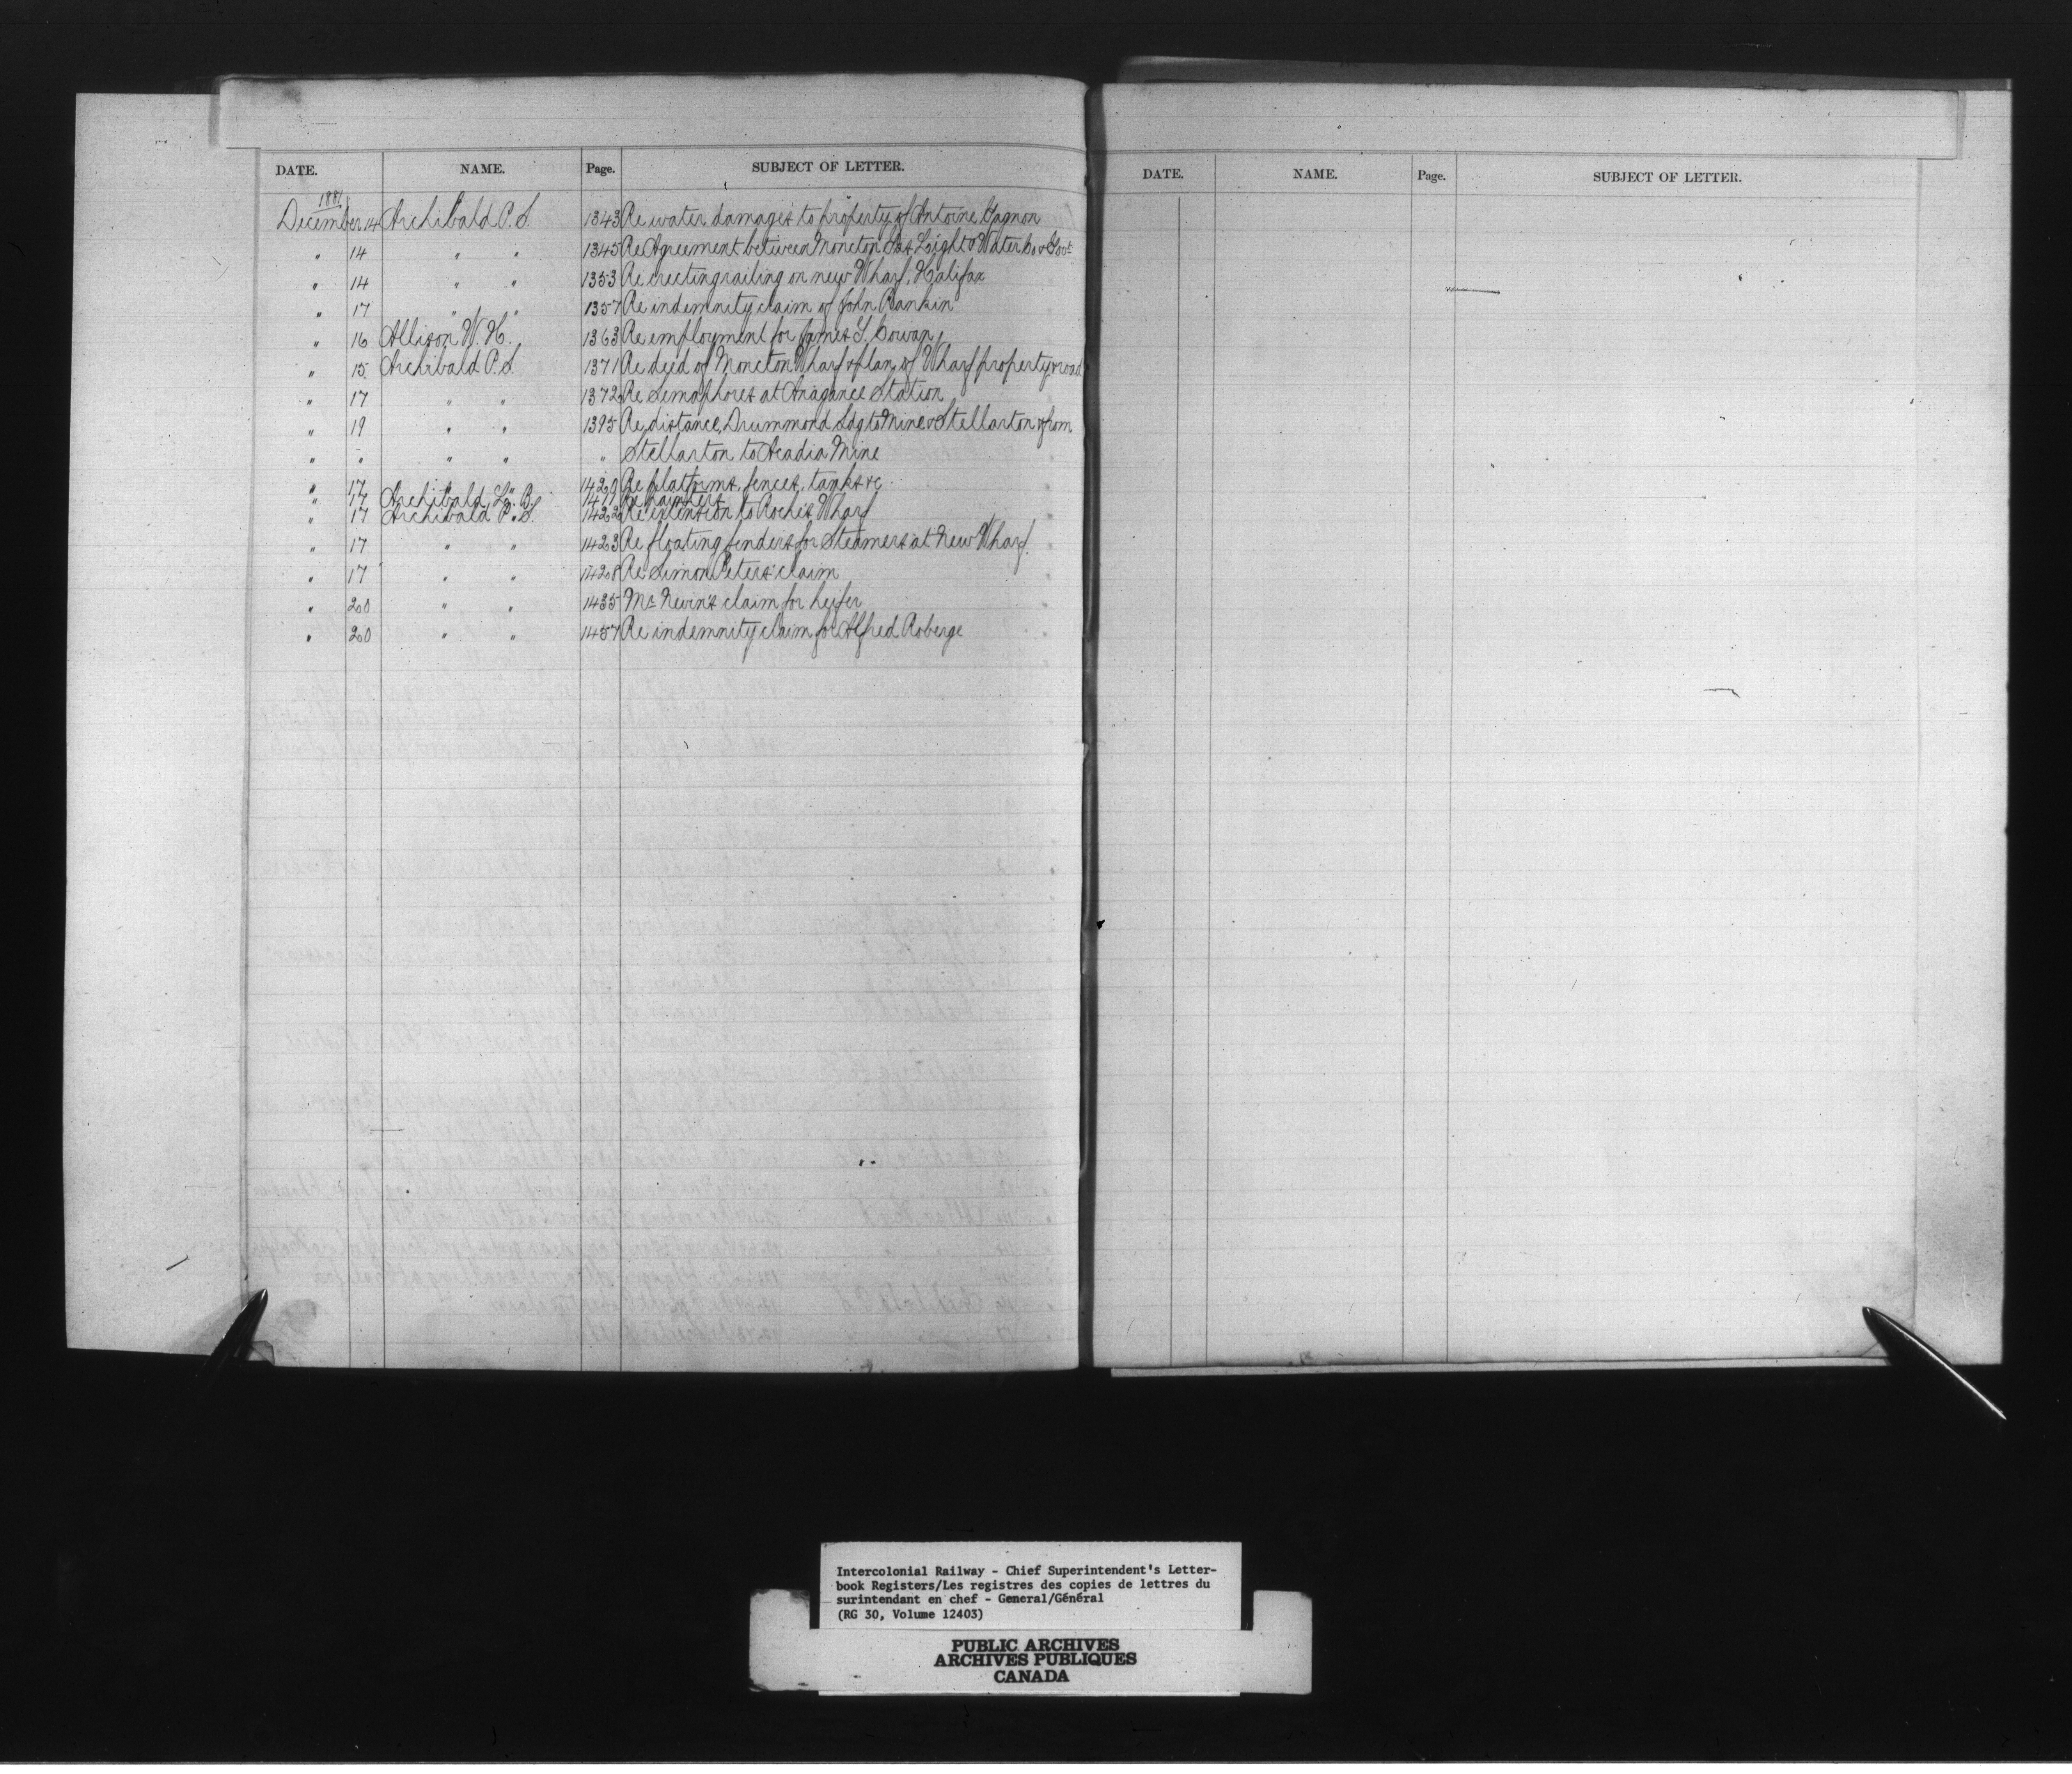 DATE. NAME. Page. SUBJECT OF LETTER.
1881
December 14 Archibald P. S. 1343 Re water damages to property of Antoine Gagnon
" 14 " " 1345 Re Agreement between Moncton Gas Light & Water Co & Govt
" 14 " " 1353 Re erecting railing on new Wharf, Halifax
" 17 " " 1357 Re indemnity claim of John Rankin
" 16 Allison W. H. 1363 Re employment for James S. Cowan
" 15 Archibald P. S. 1371 Re deed of Moncton Wharf & plan of Wharf property & road
" 17 " " 1372 Re Semaphores at Anagance Station
" 19 " " 1395 Re distance, Drummond Sdg to Mine & Stellarton & from
" " " " " Stellarton to Acadia Mine
" 17 " " 1420 Re platforms, fences, tanks &c
" 17 Archibald L. B. 1411 Re
" 17 Archibald P. S. 1422 Re extension to Roche's Wharf
" 17 " " 1423 Re floating fenders for Steamers at New Wharf
" 17 " " 1428 Re Simon Peters' claim
" 20 " " 1435 Mr Nevin's claim for heifer
" 20 " " 1457 Re indemnity claim for Alfred Roberge
DATE. NAME. Page. SUBJECT OF LETTER.
Intercolonial Railway - Chief Superintendent's Letter-
book Registers/Les registres des copies de lettres du
surintendant en chef - General/Général
(RG 30, Volume 12403)
PUBLIC ARCHIVES
ARCHIVES PUBLIQUES
CANADA